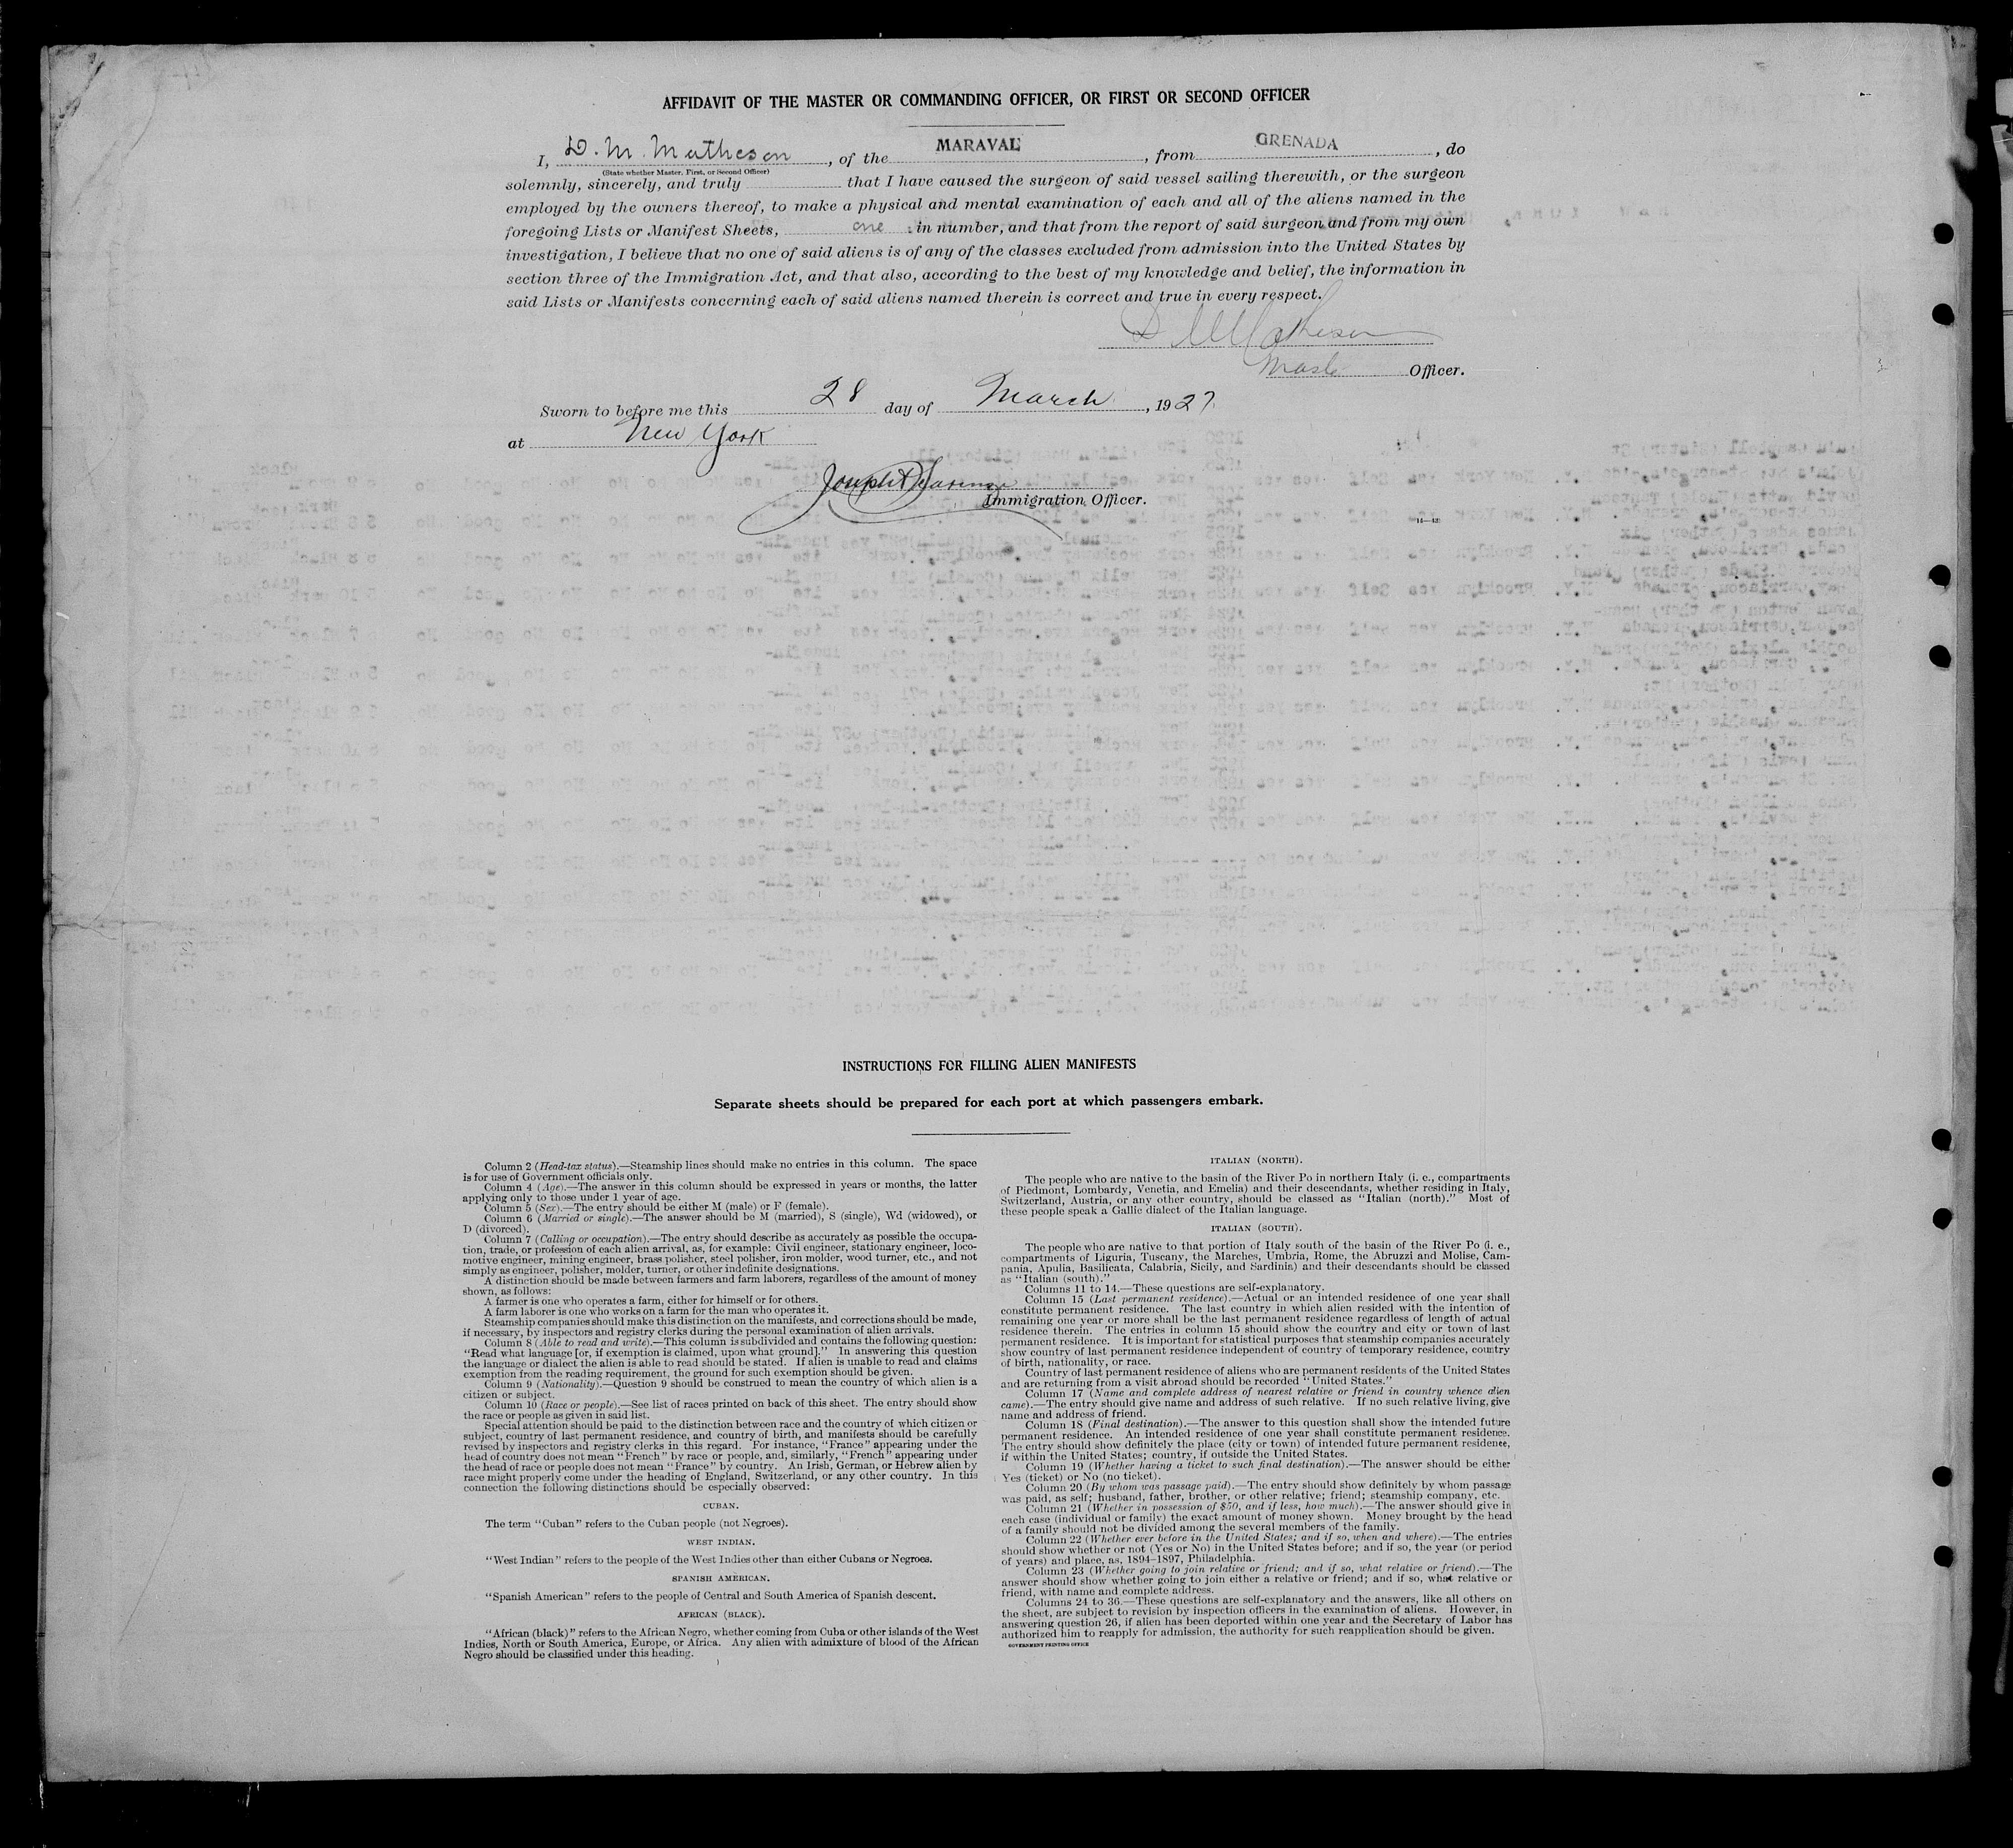 AFFIDAVIT OF THE MASTER OR COMMANDING OFFICER, OR FIRST OR SECOND OFFICER
I, D. M. Matheson, of the MARAVAL, from GRENADA, do
(State whether Master, First, or Second Officer)
solemnly, sincerely, and truly that I have caused the surgeon of said vessel sailing therewith, or the surgeon
employed by the owners thereof, to make a physical and mental examination of each and all of the aliens named in the
foregoing Lists or Manifest Sheets, one in number, and that from the report of said surgeon and from my own
investigation, I believe that no one of said aliens is of any of the classes excluded from admission into the United States by
section three of the Immigration Act, and that also, according to the best of my knowledge and belief, the information in
said Lists or Manifests concerning each of said aliens named therein is correct and true in every respect.
D M Matheson
Officer.
Sworn to before me this 28 day of March, 1927.
at New York
Immigration Officer.
INSTRUCTIONS FOR FILLING ALIEN MANIFESTS
Separate sheets should be prepared for each port at which passengers embark.
Column 2 (Head-tax status).—Steamship lines should make no entries in this column. The space
is for use of Government officials only.
Column 4 (Age).—The answer in this column should be expressed in years or months, the latter
applying only to those under 1 year of age.
Column 5 (Sex).—The entry should be either M (male) or F (female).
Column 6 (Married or single).—The answer should be M (married), S (single), Wd (widowed), or
D (divorced).
Column 7 (Calling or occupation).—The entry should describe as accurately as possible the occupa-
tion, trade, or profession of each alien arrival, as, for example: Civil engineer, stationary engineer, loco-
motive engineer, mining engineer, brass polisher, steel polisher, iron molder, wood turner, etc., and not
simply as engineer, polisher, molder, turner, or other indefinite designations.
A distinction should be made between farmers and farm laborers, regardless of the amount of money
shown, as follows:
A farmer is one who operates a farm, either for himself or for others.
A farm laborer is one who works on a farm for the man who operates it.
Steamship companies should make this distinction on the manifests, and corrections should be made,
if necessary, by inspectors and registry clerks during the personal examination of alien arrivals.
Column 8 (Able to read and write).—This column is subdivided and contains the following question:
"Read what language [or, if exemption is claimed, upon what ground]." In answering this question
the language or dialect the alien is able to read should be stated. If alien is unable to read and claims
exemption from the reading requirement, the ground for such exemption should be given.
Column 9 (Nationality).—Question 9 should be construed to mean the country of which alien is a
citizen or subject.
Column 10 (Race or people).—See list of races printed on back of this sheet. The entry should show
the race or people as given in said list.
Special attention should be paid to the distinction between race and the country of which citizen or
subject, country of last permanent residence, and country of birth, and manifests should be carefully
revised by inspectors and registry clerks in this regard. For instance, "France" appearing under the
head of country does not mean "French" by race or people, and, similarly, "French" appearing under
the head of race or people does not mean "France" by country. An Irish, German, or Hebrew alien by
race might properly come under the heading of England, Switzerland, or any other country. In this
connection the following distinctions should be especially observed:
CUBAN.
The term "Cuban" refers to the Cuban people (not Negroes).
WEST INDIAN.
"West Indian" refers to the people of the West Indies other than either Cubans or Negroes.
SPANISH AMERICAN.
"Spanish American" refers to the people of Central and South America of Spanish descent.
AFRICAN (BLACK).
"African (black)" refers to the African Negro, whether coming from Cuba or other islands of the West
Indies, North or South America, Europe, or Africa. Any alien with admixture of blood of the African
Negro should be classified under this heading.
ITALIAN (NORTH).
The people who are native to the basin of the River Po in northern Italy (i. e., compartments
of Piedmont, Lombardy, Venetia, and Emelia) and their descendants, whether residing in Italy,
Switzerland, Austria, or any other country, should be classed as "Italian (north)." Most of
these people speak a Gallic dialect of the Italian language.
ITALIAN (SOUTH).
The people who are native to that portion of Italy south of the basin of the River Po (i. e.,
compartments of Liguria, Tuscany, the Marches, Umbria, Rome, the Abruzzi and Molise, Cam-
pania, Apulia, Basilicata, Calabria, Sicily, and Sardinia) and their descendants should be classed
as "Italian (south)."
Columns 11 to 14.—These questions are self-explanatory.
Column 15 (Last permanent residence).—Actual or an intended residence of one year shall
constitute permanent residence. The last country in which alien resided with the intention of
remaining one year or more shall be the last permanent residence regardless of length of actual
residence therein. The entries in column 15 should show the country and city or town of last
permanent residence. It is important for statistical purposes that steamship companies accurately
show country of last permanent residence independent of country of temporary residence, country
of birth, nationality, or race.
Country of last permanent residence of aliens who are permanent residents of the United States
and are returning from a visit abroad should be recorded "United States."
Column 17 (Name and complete address of nearest relative or friend in country whence alien
came).—The entry should give name and address of such relative. If no such relative living, give
name and address of friend.
Column 18 (Final destination).—The answer to this question shall show the intended future
permanent residence. An intended residence of one year shall constitute permanent residence.
The entry should show definitely the place (city or town) of intended future permanent residence,
if within the United States; country, if outside the United States.
Column 19 (Whether having a ticket to such final destination).—The answer should be either
Yes (ticket) or No (no ticket).
Column 20 (By whom was passage paid).—The entry should show definitely by whom passage
was paid, as self; husband, father, brother, or other relative; friend; steamship company, etc.
Column 21 (Whether in possession of $50, and if less, how much).—The answer should give in
each case (individual or family) the exact amount of money shown. Money brought by the head
of a family should not be divided among the several members of the family.
Column 22 (Whether ever before in the United States; and if so, when and where).—The entries
should show whether or not (Yes or No) in the United States before; and if so, the year (or period
of years) and place, as, 1894–1897, Philadelphia.
Column 23 (Whether going to join relative or friend; and if so, what relative or friend).—The
answer should show whether going to join either a relative or friend; and if so, what relative or
friend, with name and complete address.
Columns 24 to 36.—These questions are self-explanatory and the answers, like all others on
the sheet, are subject to revision by inspection officers in the examination of aliens. However, in
answering question 26, if alien has been deported within one year and the Secretary of Labor has
authorized him to reapply for admission, the authority for such reapplication should be given.
GOVERNMENT PRINTING OFFICE